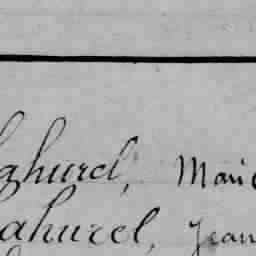 ahurel, Marie
ahurel, Jean